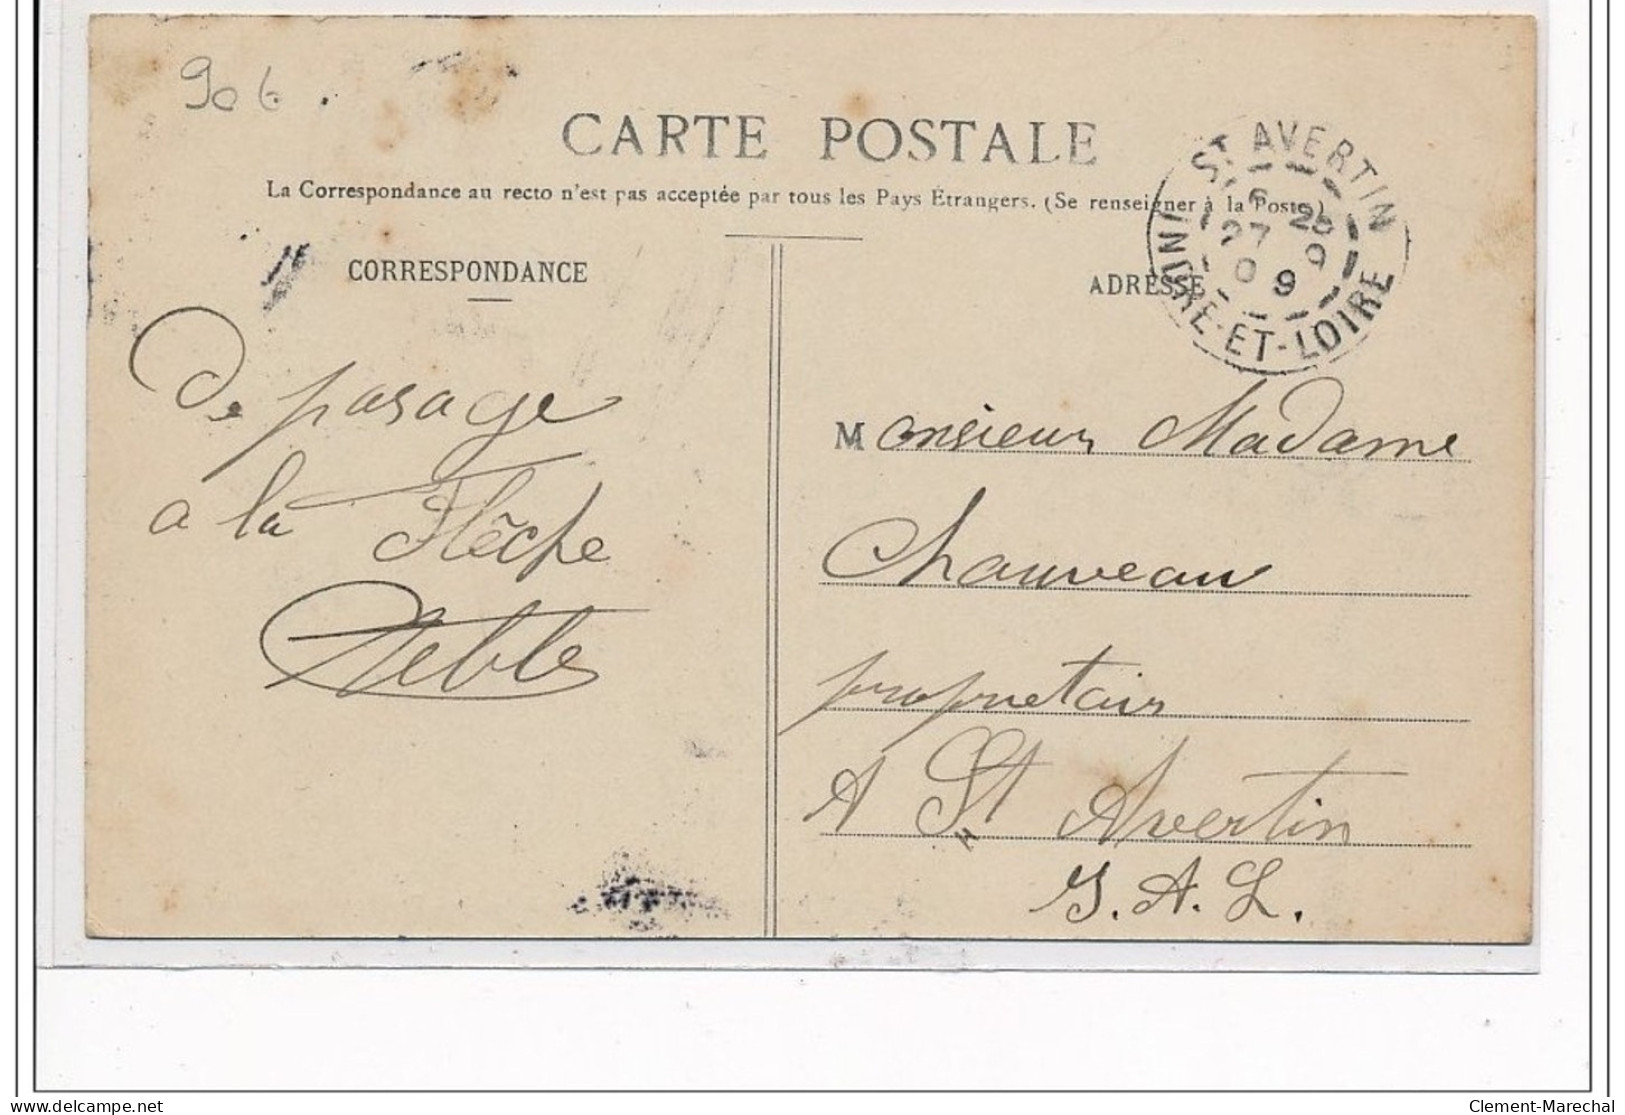 906.
CARTE POSTALE
La Correspondance au recto n'est pas acceptée par tous les Pays Étrangers. (Se renseigner à la Poste.)
CORRESPONDANCE
ADRESSE
ST AVERTIN
6 25
27 9
09
INDRE-ET-LOIRE
De pasage
a la Flêche
Monsieur Madame
Chauveau
propriétair
A St Avertin
I. A. L.
delcampe.net
Clement-Marechal